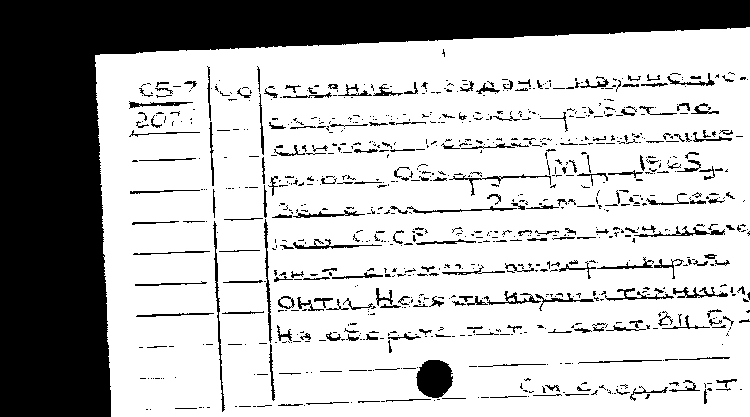 С5-7 Состояние и задачи научно-ис-
207 следовательских работ по
синтезу искусственных мине-
ралов. Обзор. [М], 1965.
36 с с илл. 26 см (Гос геол.
ком СССР Всесоюз науч.-исслед
ин-т синтеза минер сырья.
ОНТИ. Новости науки и техники
На обороте тит л. сост. В.П. Б
См след карт.